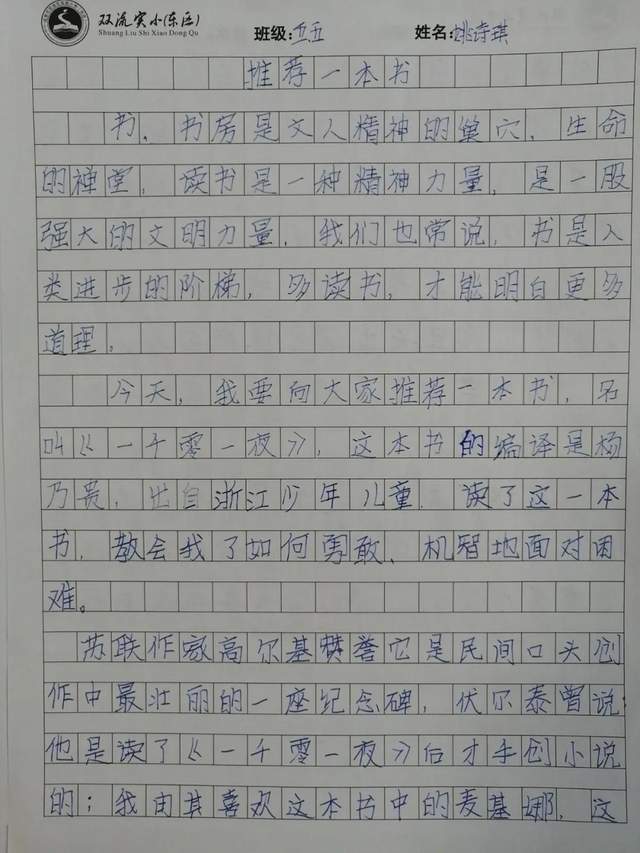 双流实小(东区)
Shuang Liu Shi Xiao Dong Qu
班级:五五 姓名:姚诗琪
推荐一本书
书，书房是文人精神的巢穴，生命
的禅堂，读书是一种精神力量，是一股
强大的文明力量，我们也常说，书是人
类进步的阶梯，多读书，才能明白更多
道理。
今天，我要向大家推荐一本书，名
叫《一千零一夜》，这本书的编译是杨
乃贵，出自浙江少年儿童，读了这一本
书，教会我了如何勇敢、机智地面对困
难。
苏联作家高尔基赞誉它是民间口头创
作中最壮丽的一座纪念碑，伏尔泰曾说:
他是读了《一千零一夜》后才手创小说
的；我由其喜欢这本书中的麦基娜，这